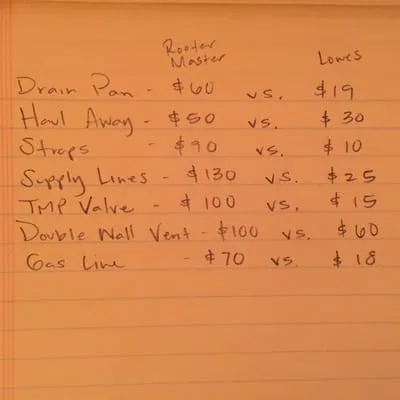 Rooter Lowes
Master
Drain Pan - $60 vs. $19
Haul Away - $50 vs. $30
Straps - $90 vs. $10
Supply Lines - $130 vs. $25
TMP Valve - $100 vs. $15
Double Wall Vent - $100 vs. $60
Gas Line - $70 vs. $18